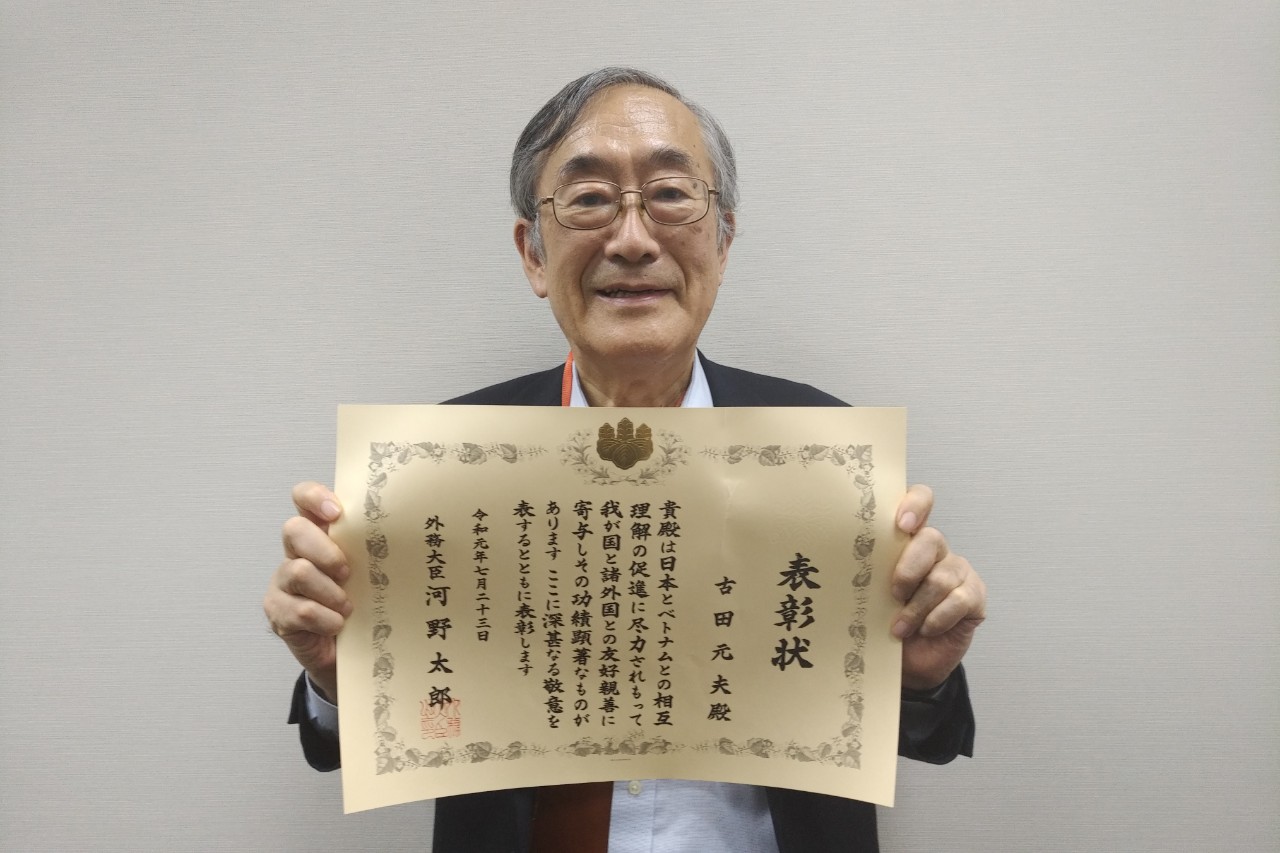 表彰状
古田元夫殿
貴殿は日本とベトナムとの相互
理解の促進に尽力されもって
我が国と諸外国との友好親善に
寄与しその功績顕著なものが
あります ここに深甚なる敬意を
表するとともに表彰します
令和元年七月二十三日
外務大臣 河野太郎